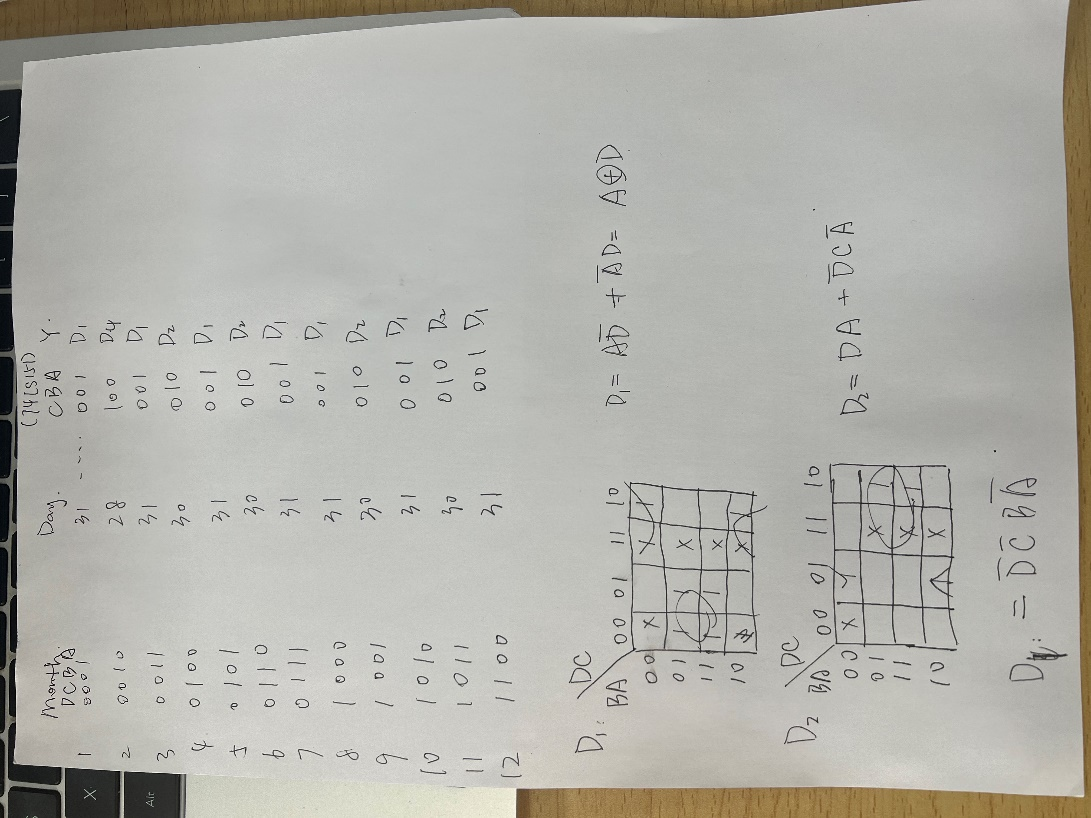 (74LS151)
Month Day. ---- CBA Y.
DCBA
1 0001 31 001 D1
2 0010 28 100 D4
3 0011 31 001 D1
4 0100 30 010 D2
5 0101 31 001 D1
6 0110 30 010 D2
7 0111 31 001 D1
8 1000 31 001 D1
9 1001 30 010 D2
10 1010 31 001 D1
11 1011 30 010 D2
12 1100 31 001 D1
D1: DC
BA 00 01 11 10
00 X X 1
01 1 1 X
11 1 1 X
10 X 1
D1 = AD̅ + A̅D = A⊕D
D2 DC
BA 00 01 11 10
00 X 1
01 X 1
11 X 1
10 1 X
D2 = DA + D̅CA̅
= D̅C̅BA̅
X
Alt